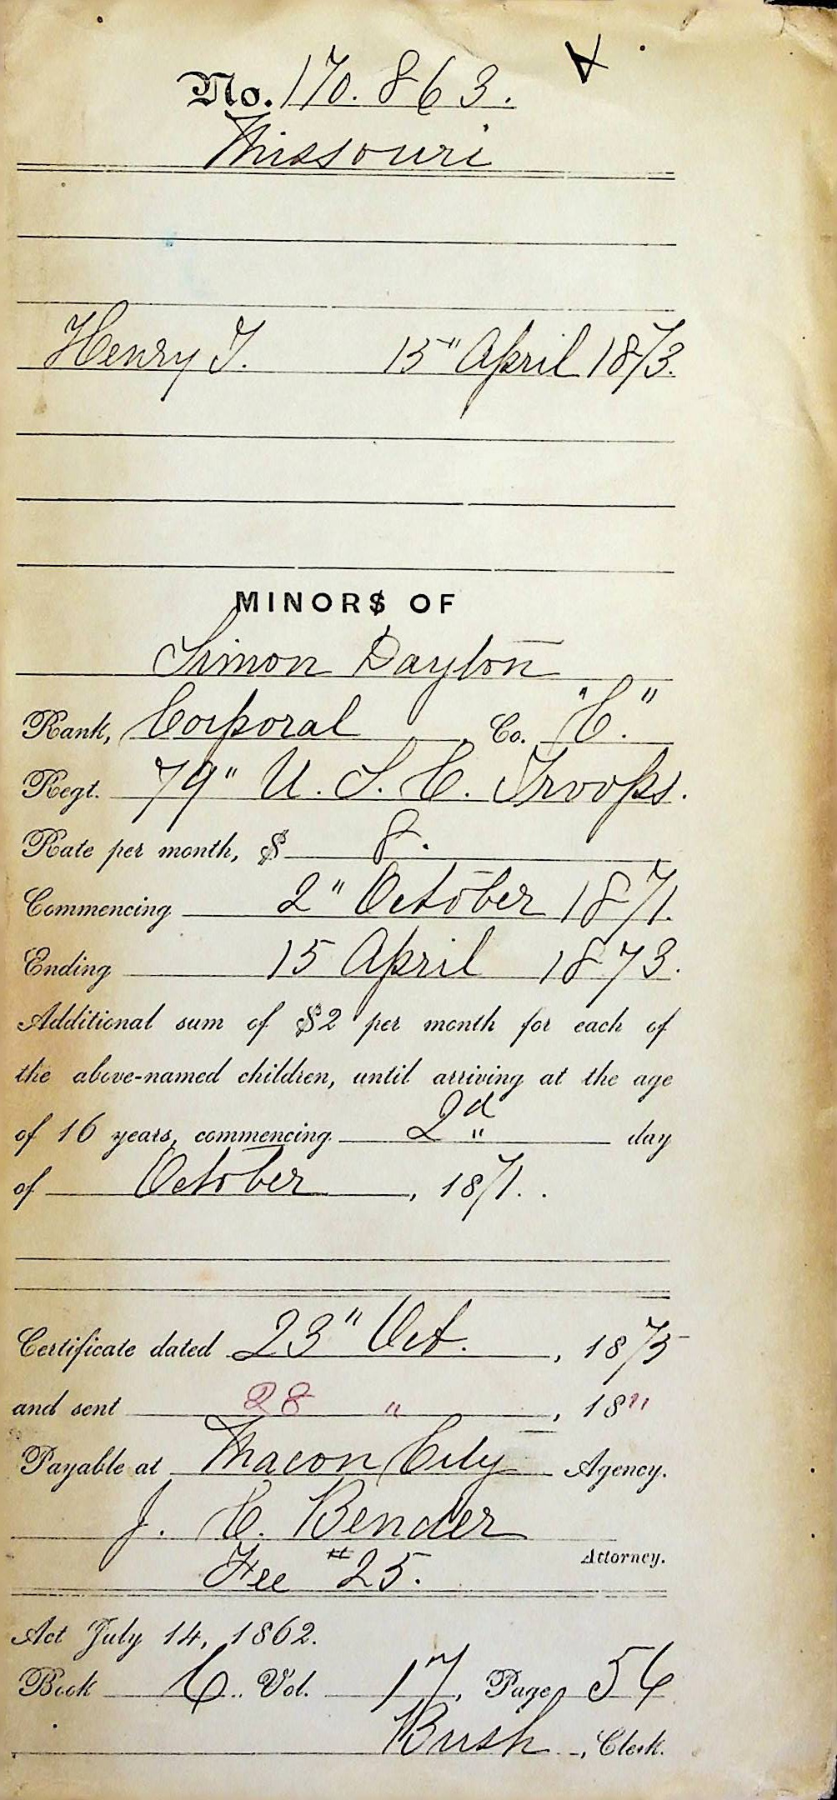 No. 170.863.
Missouri
Henry T. 15" April 1873.
MINOR$ OF
Simon Dayton
Rank, Corporal Co. "C."
Regt. 79" U. S. C. Troops.
Rate per month, $ 8.
Commencing 2" October 1871.
Ending 15 April 1873.
Additional sum of $2 per month for each of
the above-named children, until arriving at the age
of 16 years, commencing 2d" day
of October, 1871..
Certificate dated 23" Oct., 1875
and sent 28 ", 18"
Payable at Macon City Agency.
J. C. Bender
Attorney.
Fee $25.
Act July 14, 1862.
Book C. Vol. 17, Page 56
Bush, Clerk.